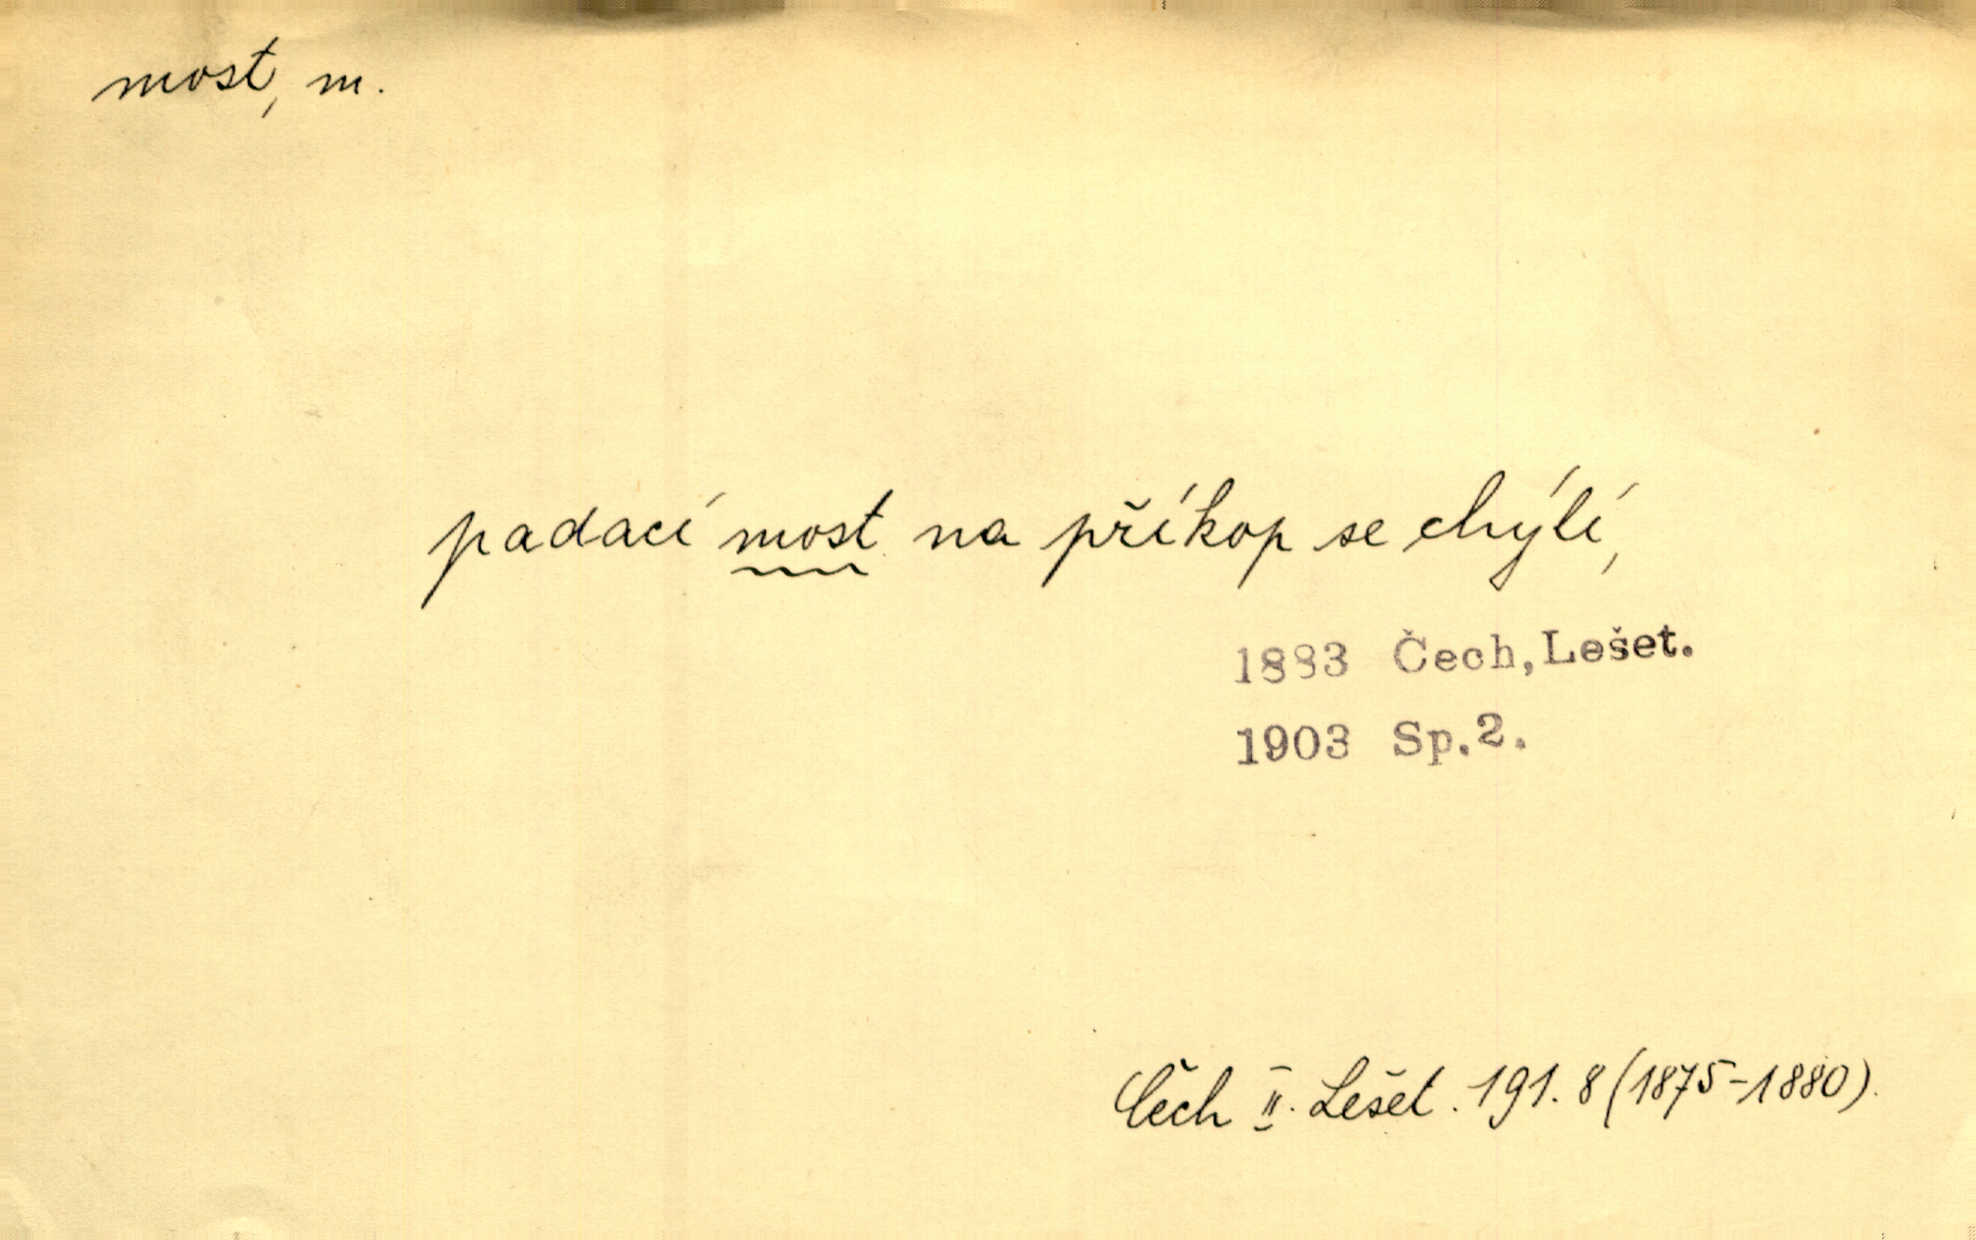 most, m.
padací most na příkop se chýlí,
1883 Čech, Lešet.
1903 Sp. 2.
Čech II. Lešet. 191. 8 (1875-1880).